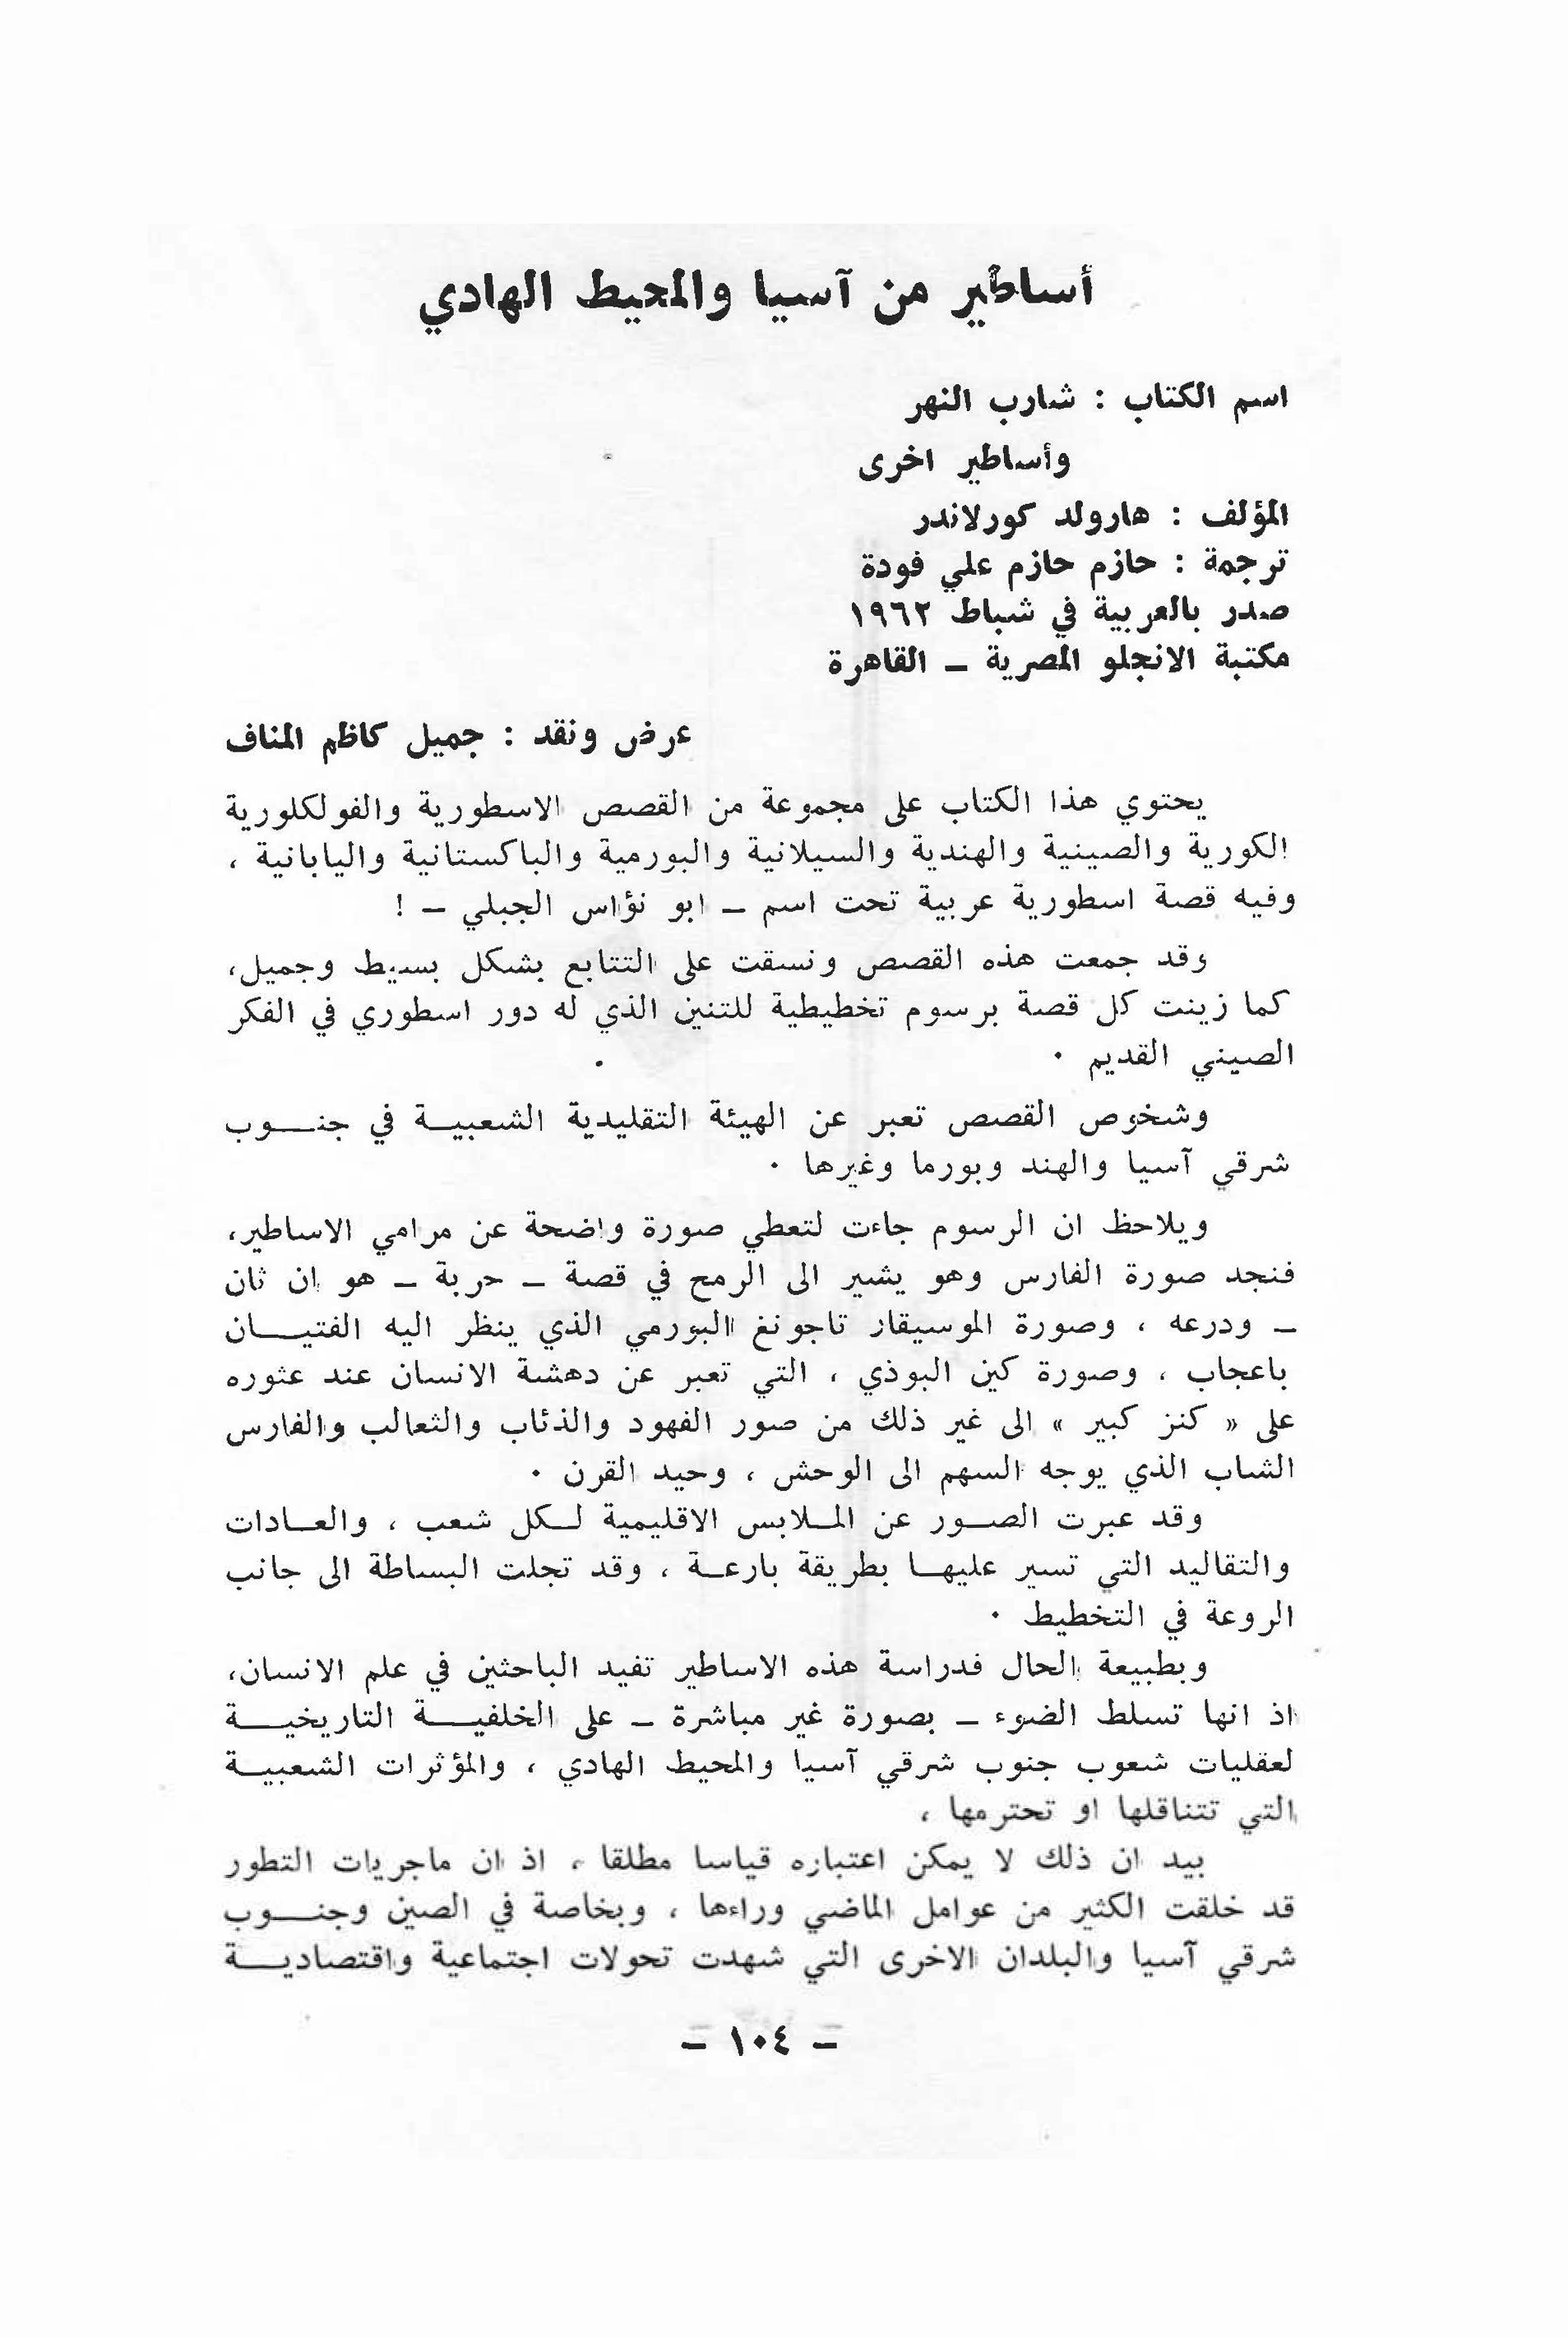 أساطير من آسيا والمحيط الهادي
اسم الكتاب : شارب النهر
وأساطير اخرى
المؤلف : هارولد كورلاندر
ترجمة : حازم حازم علي فودة
صدر بالعربية في شباط ١٩٦٢
مكتبة الانجلو المصرية – القاهرة
عرض ونقد : جميل كاظم المناف
يحتوي هذا الكتاب على مجموعة من القصص الاسطورية والفولكلورية
الكورية والصينية والهندية والسيلانية والبورمية والباكستانية واليابانية ،
وفيه قصة اسطورية عربية تحت اسم – ابو نؤاس الجبلي – !
وقد جمعت هذه القصص ونسقت على التتابع بشكل بسيط وجميل،
كما زينت كل قصة برسوم تخطيطية للتنين الذي له دور اسطوري في الفكر
الصيني القديم ٠
وشخوص القصص تعبر عن الهيئة التقليدية الشعبيـة في جنـوب
شرقي آسيا والهند وبورما وغيرها ٠
ويلاحظ ان الرسوم جاءت لتعطي صورة واضحة عن مرامي الاساطير،
فنجد صورة الفارس وهو يشير الى الرمح في قصة – حربة – هو ان ثان
– ودرعه ، وصورة الموسيقار تاجونغ البورمي الذي ينظر اليه الفتيـان
باعجاب ، وصورة كين البوذي ، التي تعبر عن دهشة الانسان عند عثوره
على « كنز كبير » الى غير ذلك من صور الفهود والذئاب والثعالب والفارس
الشاب الذي يوجه السهم الى الوحش ، وحيد القرن ٠
وقد عبرت الصـور عن المـلابس الاقليمية لـكل شعب ، والعـادات
والتقاليد التي تسير عليهـا بطريقة بارعـة ، وقد تجلت البساطة الى جانب
الروعة في التخطيط ٠
وبطبيعة الحال فدراسة هذه الاساطير تفيد الباحثين في علم الانسان،
اذ انها تسلط الضوء – بصورة غير مباشرة – على الخلفيـة التاريخيـة
لعقليات شعوب جنوب شرقي آسيا والمحيط الهادي ، والمؤثرات الشعبيـة
التي تتناقلها او تحترمها ،
بيد ان ذلك لا يمكن اعتباره قياسا مطلقا ، اذ ان ماجريات التطور
قد خلقت الكثير من عوامل الماضي وراءها ، وبخاصة في الصين وجنـوب
شرقي آسيا والبلدان الاخرى التي شهدت تحولات اجتماعية واقتصاديـة
– ١٠٤ –